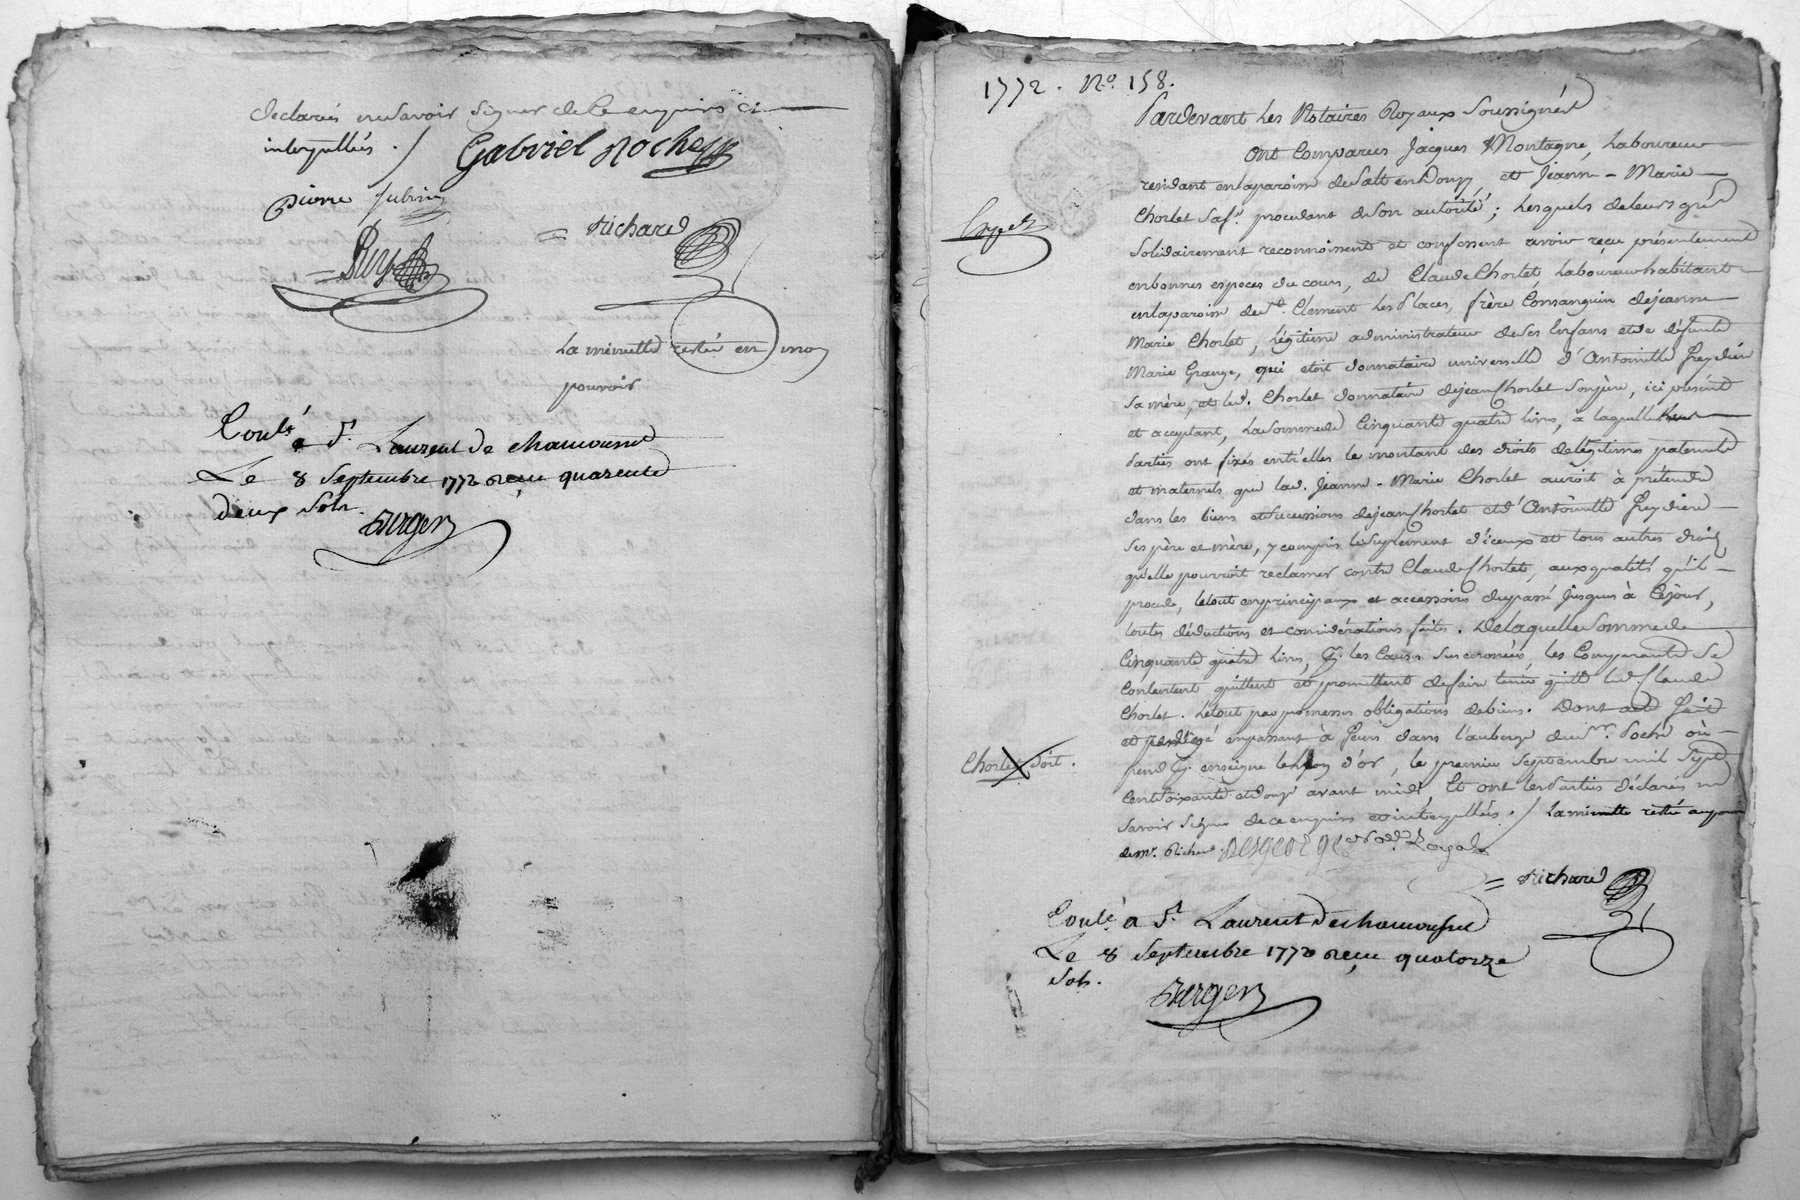 declarés ne savoir signer de ce enquis et
interpellés. /
Gabriel Roche
pierre Jubin
Richard
La minutte restée en mon
pouvoir
Conlé
a St. Laurent de chamousset
Le 8 Septembre 1772 reçu quarente
deux Sols.
1772. No. 158.
Pardevant Les Notaires Royaux Soussignés
ont Comparus Jacques Montagne, Laboureur
residant en la paroisse de Salt en Donzy et Jeanne-Marie
Chorlet Sa fe. procedant de Son autorité; Lesquels de leurs grés
Solidairement reconnoissent et confessent avoir reçu présentement
en bonnes especes du cours, de Claude Chorlet, Laboureur habitant
en la paroisse de St. Clement Les Places, frère Consanguin de jeanne
Marie Chorlet, Légitime administrateur de Ses Enfans et de défunte
Marie Grange, qui étoit donnataire universelle d'Antoinette Freydière
Sa mère, et led. Chorlet donnataire de jean Chorlet Son père, ici présent
et acceptant, La Somme de Cinquante quatre livres, a laquelle Les
Parties ont fixés entr'elles le montant des droits de Légitimes paternels
et maternels que lad. Jeanne-Marie Chorlet auroit à prétendre
dans les biens et Successions de jean Chorlet et d'Antoinette Freydière
Ses père et mère, y compris le Suplement d'iceux et tous autres droits
qu'elle pourroit reclamer contre Claude Chorlet, aux qualités qu'il
procede, le tout en principaux et accessoires du passé jusques à Ce jour,
toutes déductions et considérations faites. De laquelle Somme de
Cinquante quatre Livres, les Causes Susenoncées, les Comparants Se
Contentent quittent et promettent de faire tenir quitte led. Claude
Chorlet. Le tout par promesses obligations de biens. Dont acte Fait
et passé en passant à Feurs dans l'auberge du Sr. Poche où
pend enseigne le Lion d'or, le premier Septembre mil Sept
Cent Soixante et douze avant midi, Et ont les Parties déclarés ne
Savoir Signer de ce enquis et interpellés. / La minutte restée au pouvoir
de Mr. Richard.
Chorlet Soit.
Richard
Conlé à St. Laurent de chamousset
Le 8 Septembre 1772 reçu quatorze
Sols.